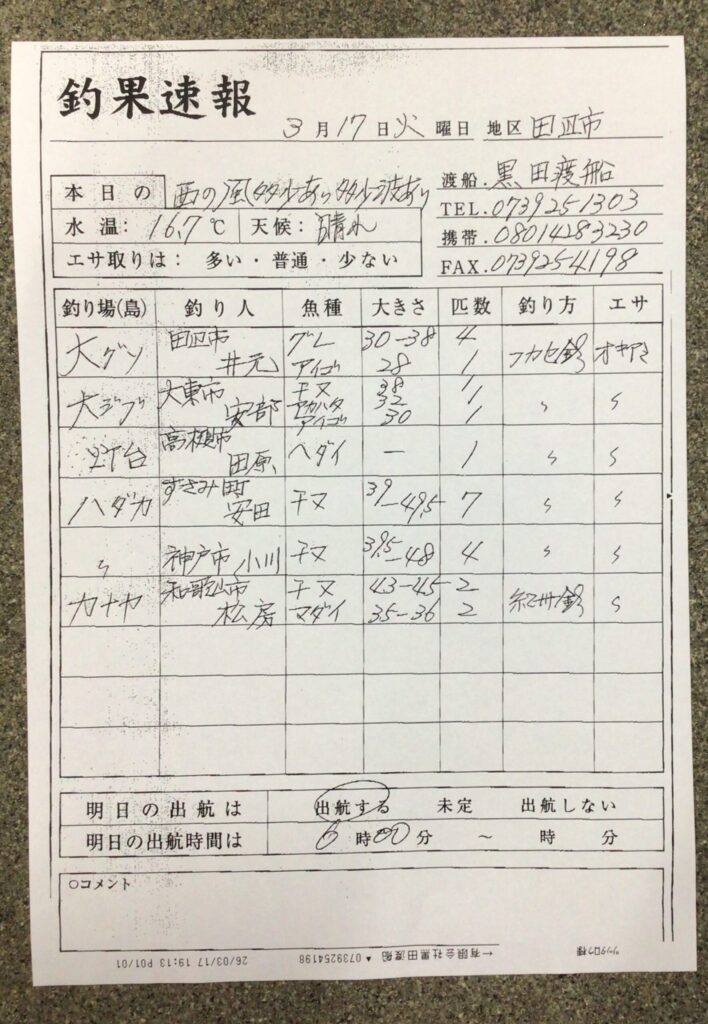 釣果速報
3月17日火曜日 地区 田辺市
本日の 西の風多少あり多少波あり
渡船.黒田渡船
TEL.0739251303
水温: 16.7℃ 天候: 晴れ
携帯.08014283230
エサ取りは: 多い・普通・少ない
FAX.0739254198
釣り場(島) 釣り人 魚種 大きさ 匹数 釣り方 エサ
大グソ 田辺市 井元 グレ 30-38 4 フカセ釣 オキアミ
アイゴ 28 1
大ジブ 大東市 安部 チヌ 38 1 〃 〃
アカハタ 32 1
アイゴ 30 1
灯台 高槻市 田原 ヘダイ - 1 〃 〃
ハダカ すさみ町 安田 チヌ 39-49.5 7 〃 〃
〃 神戸市 小川 チヌ 39.5-48 4 〃 〃
カナヤ 和歌山市 松房 チヌ 43-45 2 〃
マダイ 35-36 2
明日の出航は 出航する 未定 出航しない
明日の出航時間は 6時00分 ～ 時 分
○コメント
←有限会社黒田渡船 ▲ 0739254198 26/03/17 19:13 P01/01